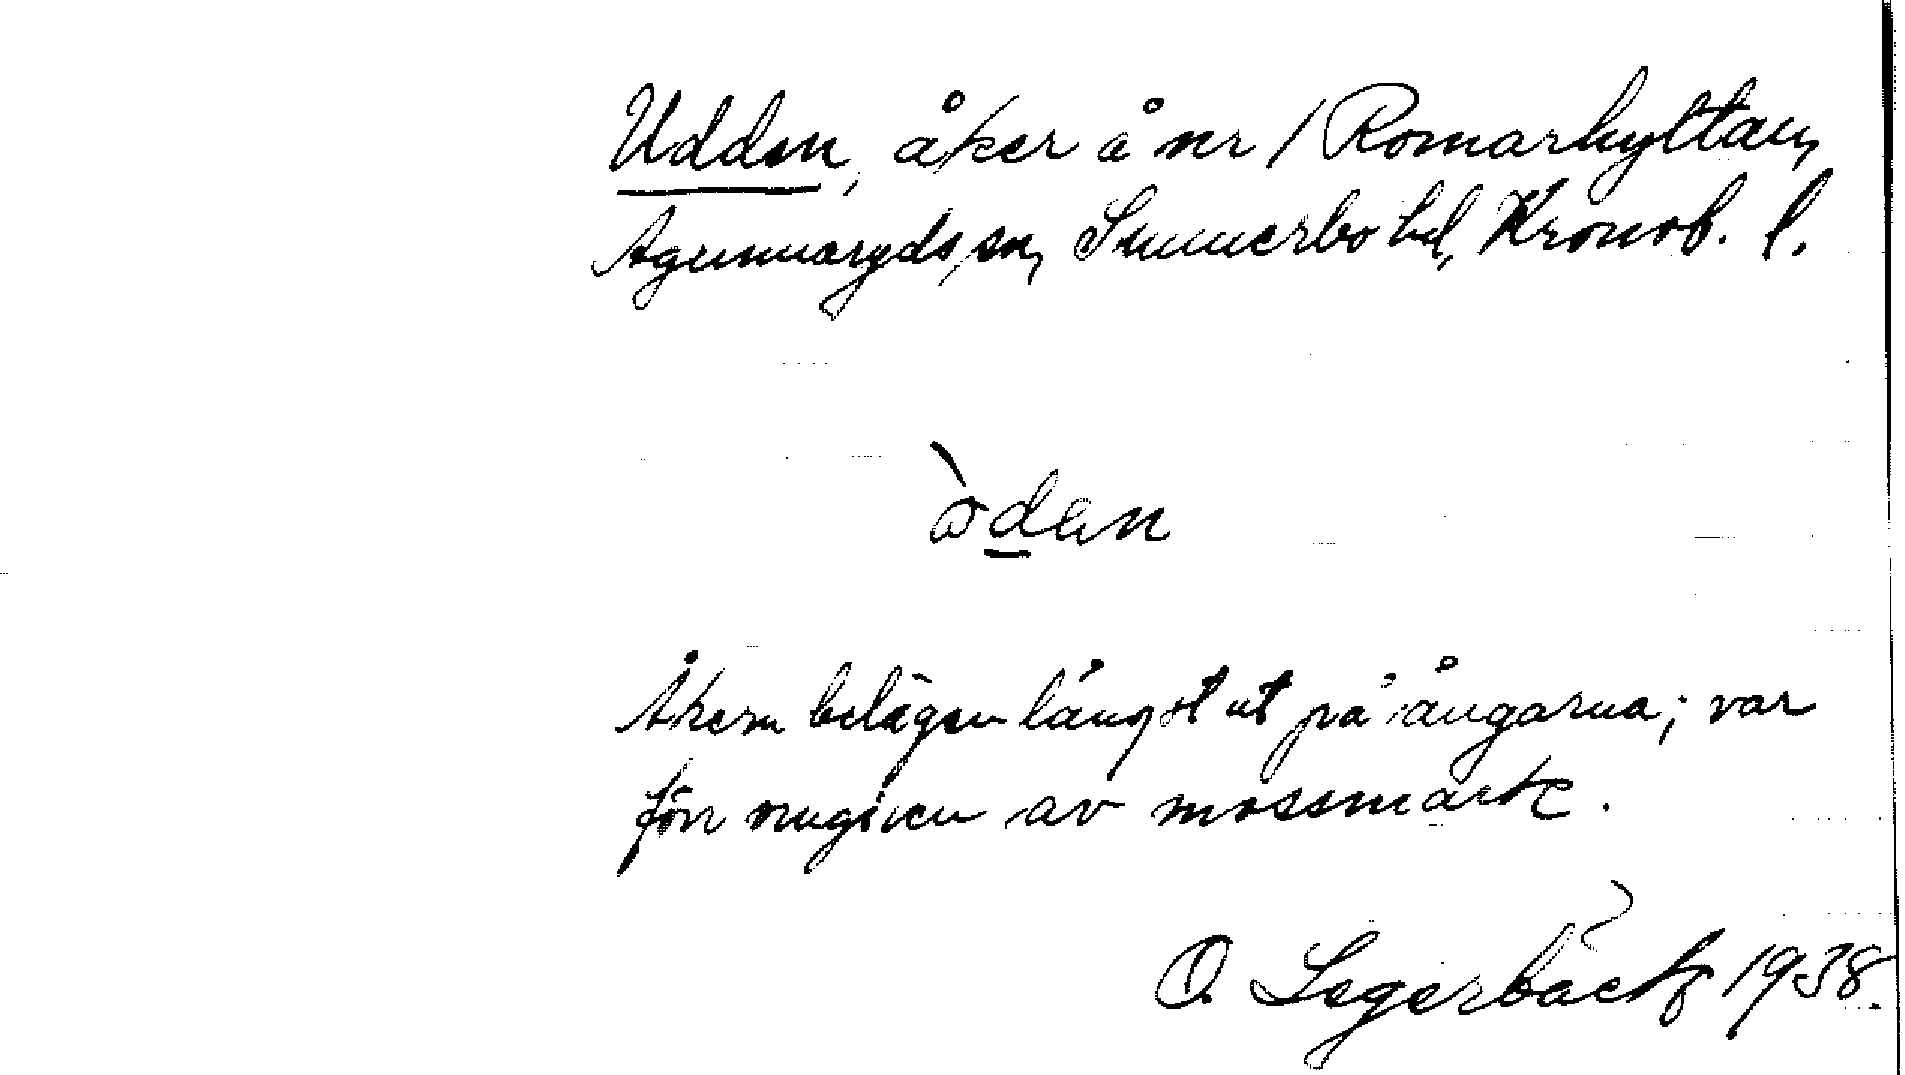 Udden, åker å nr 1 Romarhyltan,
Agunnaryds sn, Sunnerbo hd, Kronob. l.
òdan
Åkern belägen längst ut på ängarna; var
förr omgiven av mossmark.
O. Segerbäck 1938.